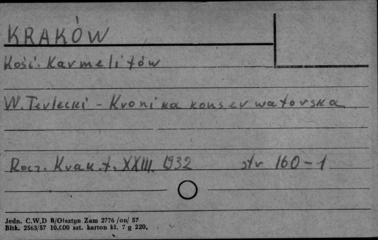 KRAKÓW
Kość. Karmelitów
W. Terlecki - Kronika konserwatorska
Rocz. Krak. t. XXIII. 1932 str 160-1
Jedn. C.W.D B/Olsztyn Zam 2776 /on/ 57
Bltk. 2563/57 10.000 szt. karton kl. 7 g 220.